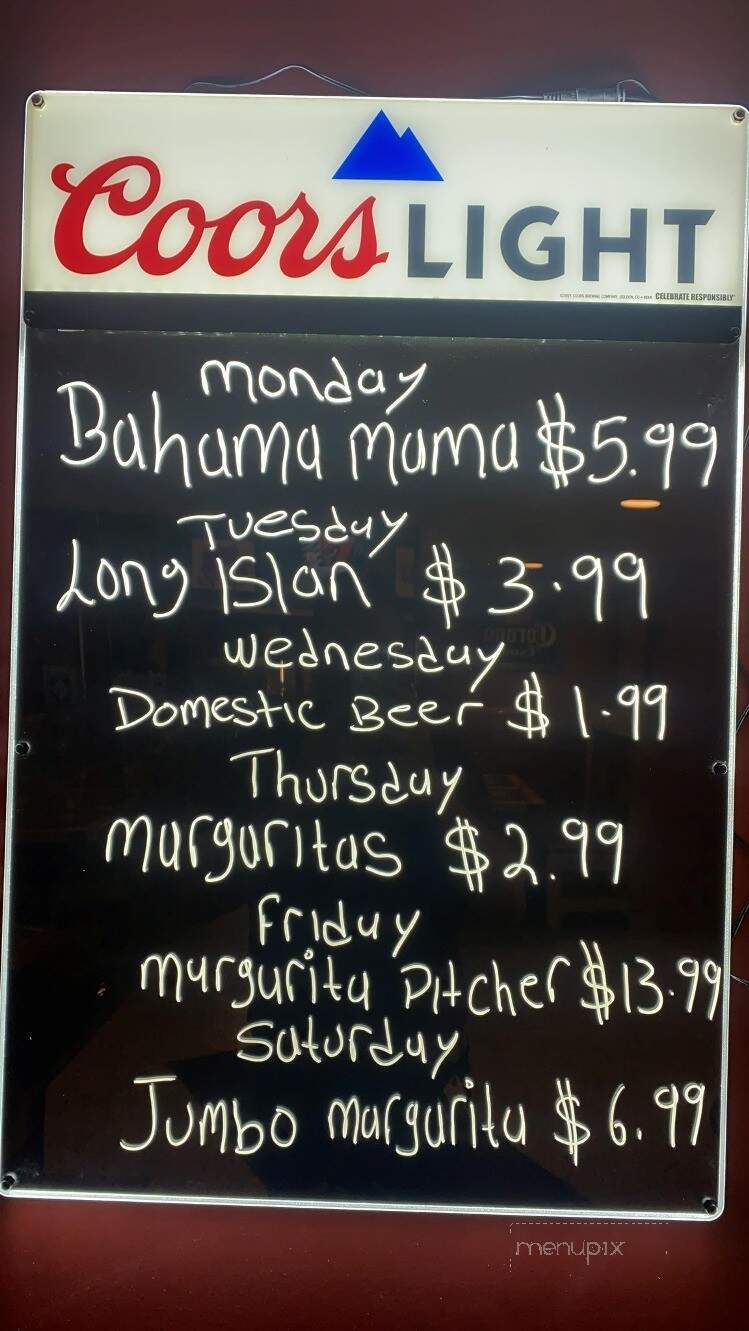 Coors LIGHT
CELEBRATE RESPONSIBLY
monday
Bahama mama $5.99
Tuesday
Long Islan $3.99
wednesday
Domestic Beer $1.99
Thursday
margaritas $2.99
Friday
margarita Pitcher $13.99
Saturday
Jumbo margarita $6.99
menupix